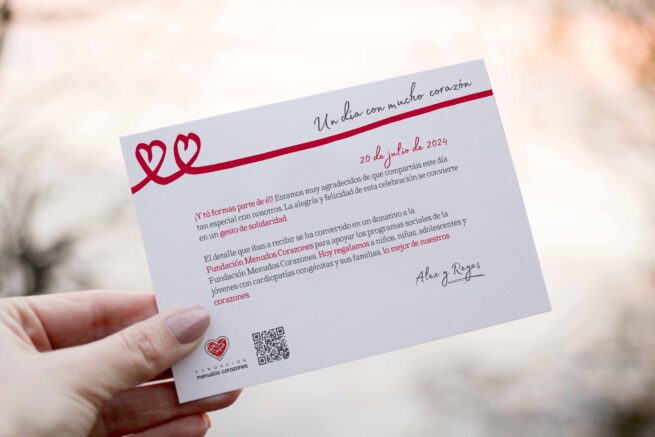 Un día con mucho corazón
20 de julio de 2024
¡Y tú formas parte de él! Estamos muy agradecidos de que compartáis este día
tan especial con nosotros. La alegría y felicidad de esta celebración se convierte
en un gesto de solidaridad.
El detalle que ibas a recibir se ha convertido en un donativo a la
Fundación Menudos Corazones para apoyar los programas sociales de la
Fundación Menudos Corazones. Hoy regalamos a niños, niñas, adolescentes y
jóvenes con cardiopatías congénitas y sus familias, lo mejor de nuestros
corazones.
Alex y Reyes
FUNDACIÓN
menudos corazones